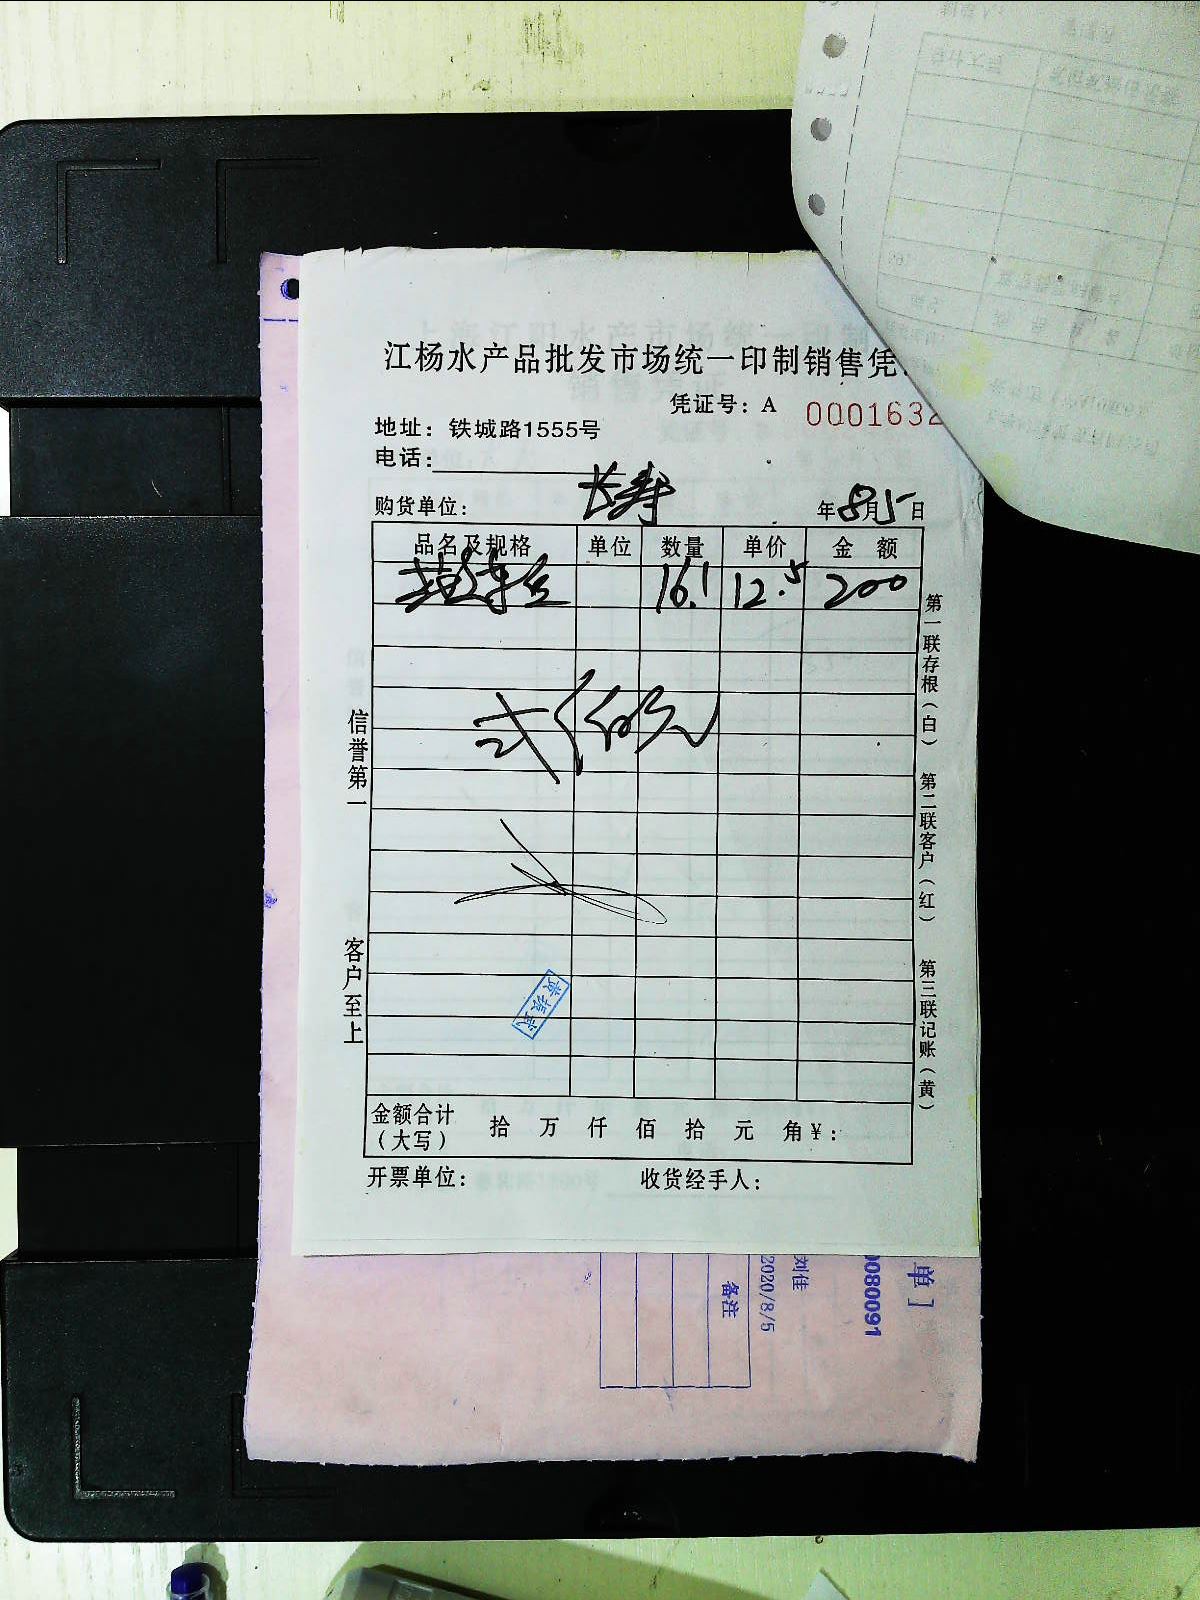 江杨水产品批发市场统一印制销售凭
凭证号：A 0001632
地址：铁城路1555号
电话：
购货单位：长寿 年8月5日
品名及规格 单位 数量 单价 金额
16.1 12.5 200
弍佰元
信誉第一
客户至上
第一联存根（白）
第二联客户（红）
第三联记账（黄）
黄振武
金额合计（大写） 拾 万 仟 佰 拾 元 角¥：
开票单位： 收货经手人：
单]
0080091
刘佳
2020/8/5
备注